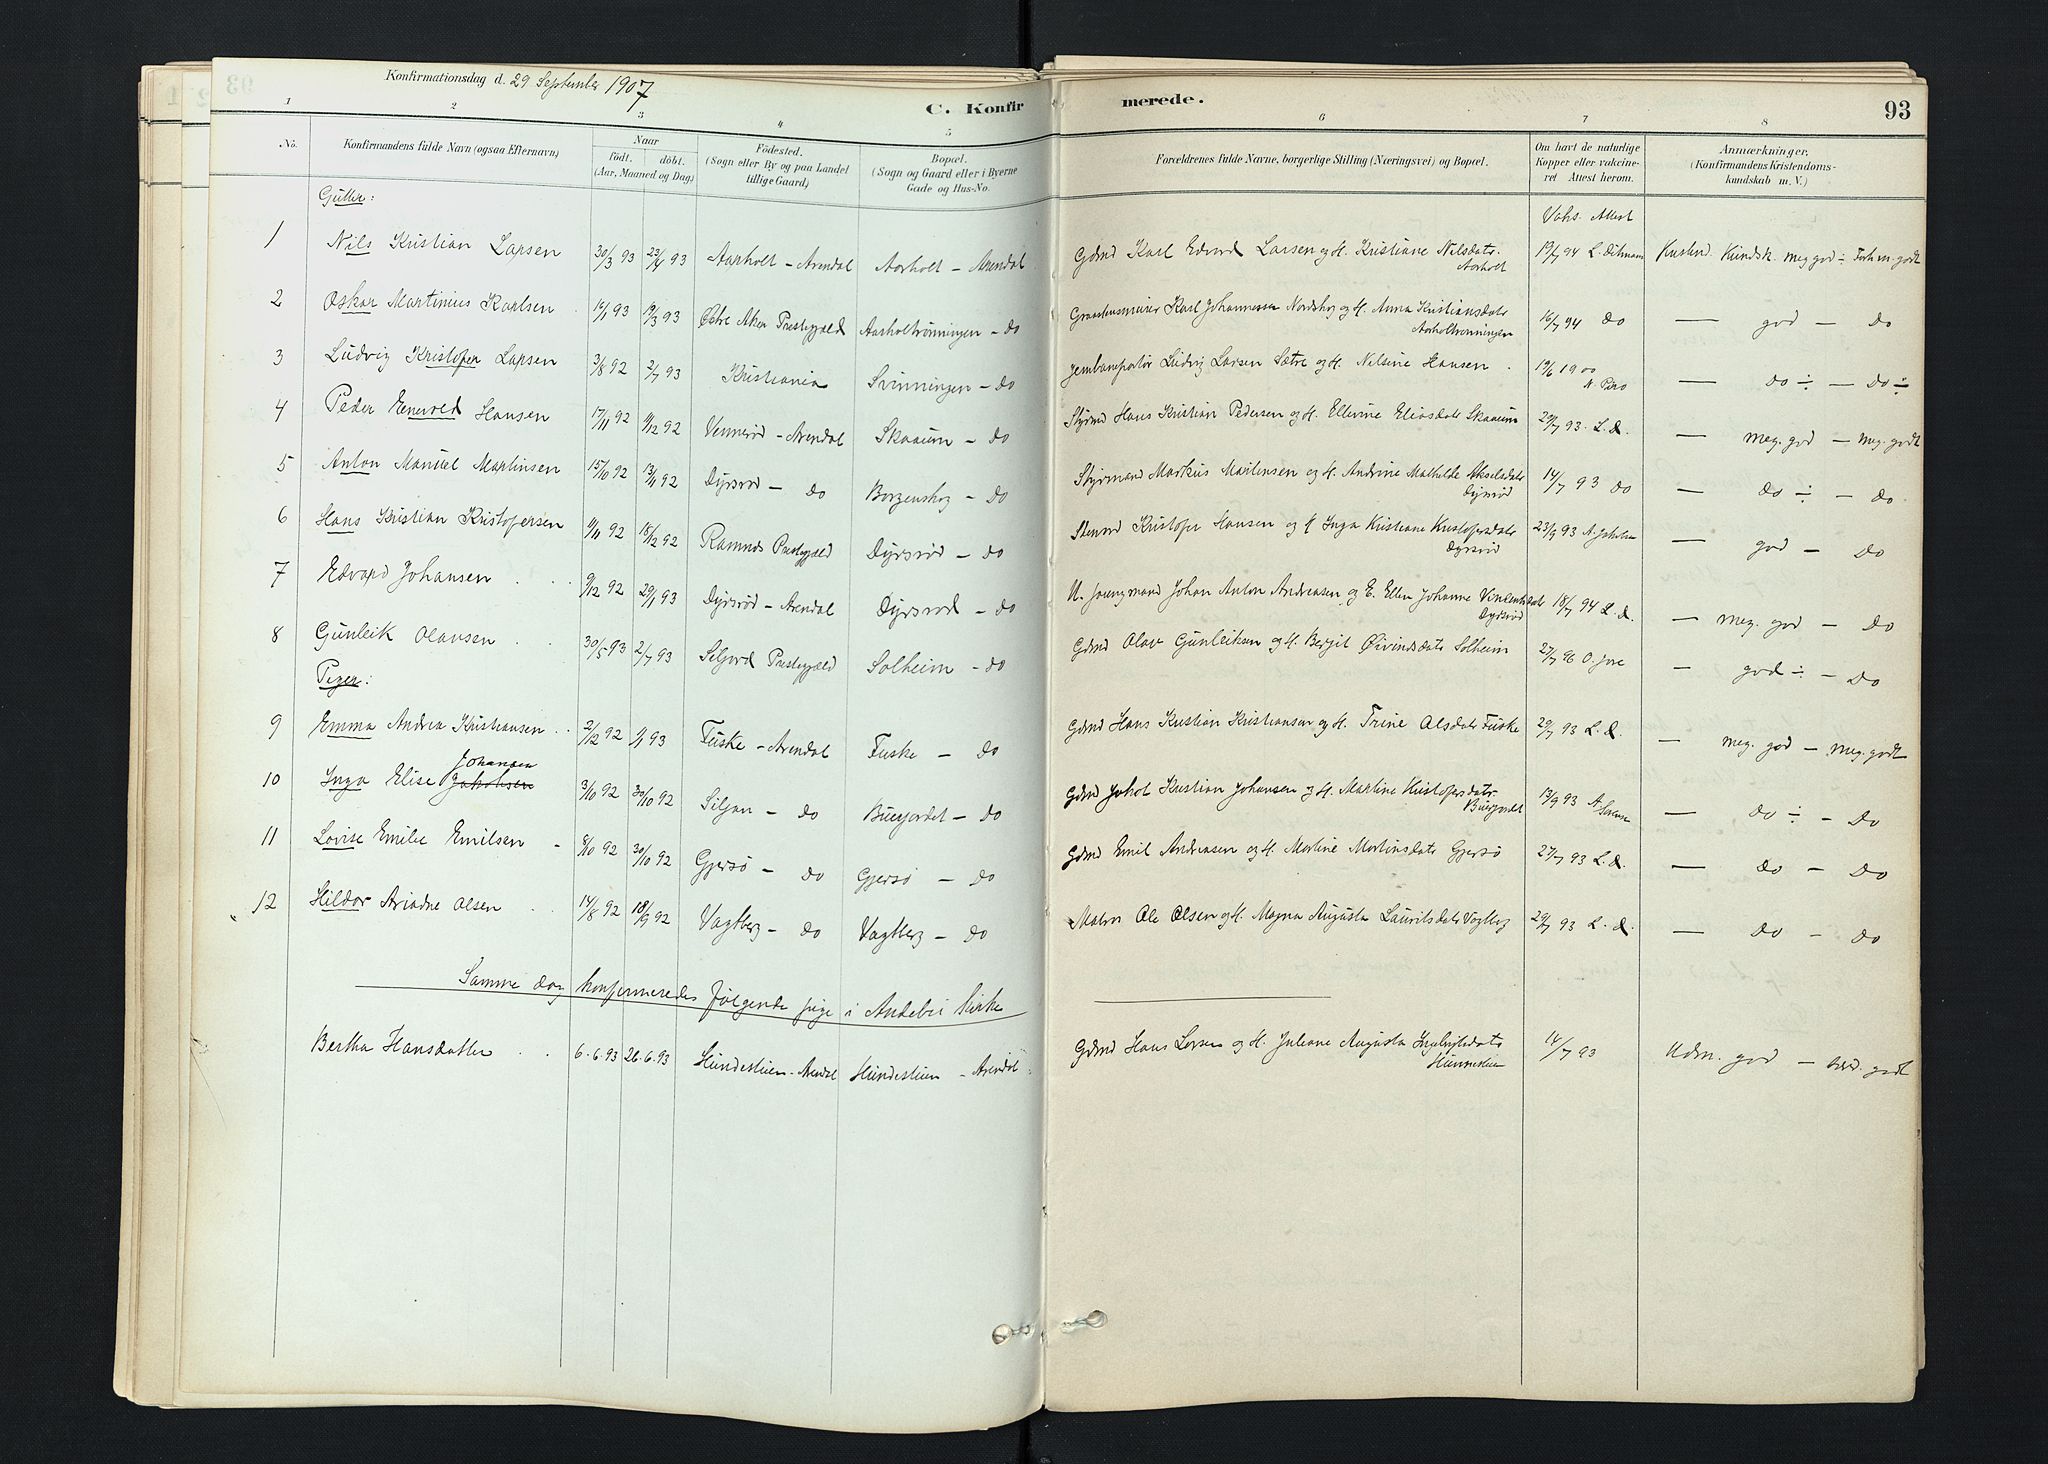 Konfirmationsdag d. 29 September 1907
C. Konfirmerede.
93
1 2 3 4 5 6 7 8
No.
Konfirmandens fulde Navn (ogsaa Efternavn)
Naar
födt. döbt.
(Aar, Maaned og Dag)
Födested.
(Sogn eller By og paa Landet
tillige Gaard)
Bopæl.
(Sogn og Gaard eller i Byerne
Gade og Hus-No.
Forældrenes fulde Navne, borgerlige Stilling (Næringsvei) og Bopæl.
Om havt de naturlige
Kopper eller vakcine-
ret Attest herom.
Anmærkninger.
(Konfirmandens Kristendoms-
kundskab m. V.)
Gutter:
Vaks. Attest
1 Nils Kristian Larsen 30/3 93 23/4 93 Aarholt - Arendal Aarholt - Arendal Gdmd Karl Edvard Larsen og H. Kristiane Nilsdatr. Aarholt 19/7 94 L. Ditmans Kristend. Kundsk. meg god ÷ Forh. m. godt
2 Oskar Martinius Karlsen 16/1 93 19/3 93 Østre Aker Prestegjeld Aarholtrönningen - Do Karl Johannessen Nordskog og H. Anna Kristiansdatr Aarholtrönningen 16/7 94 Do — god — Do
3 Ludvig Kristofer Larsen 3/8 92 2/7 93 Kristiania Svinningen - Do Jernbaneportör Ludvig Larsen Sætre og H. Nilsine Hansen. 19/6 1900 — Do ÷ — Do ÷
4 Peder Enevold Hansen 17/11 92 11/12 92 Vennerød - Arendal Skaaum - Do Styrmd Hans Kristian Pedersen og H. Ellevine Eliasdatr Skaaum 20/7 93. L. D. — meg. god — meg. godt
5 Anton Manuel Martinsen 15/10 92 13/11 92 Dyrsrød - Do Borgenskog - Do Styrmand Markus Martensen og H. Andrine Mathilde Akselsdatr Dyrsrød 14/7 93 Do — Do ÷ — Do
6 Hans Kristian Kristofersen 11/11 92 18/12 92 Ramnæs Prestegjeld Dyrsrød - Do Kristofer Hansen og H Inga Kristiane Kristofersdatr Dyrsrød 23/9 93 A. Jakobsen — god — Do
7 Edvard Johansen 9/12 92 29/1 93 Dyrsrød - Arendal Dyrsrød - Do U. Jungmand Johan Anton Andreasen og E. Ellen Johanne Vincentsdatr Dyrsrød 18/7 94 L. D. — meg. god — Do
8 Gunleik Olavsen 30/5 93 2/7 93 Seljord Prestegjeld Solheim - Do Gdmd Olav Gunleiksen og H. Bergit Øivindsdatr Solheim 27/7 96 — god ÷ — Do
Piger:
9 Emma Andrea Kristiansen 2/12 92 1/1 93 Fuske - Arendal Fuske - Do Gdmd Hans Kristian Kristiansen og H. Trine Olsdatr Fuske 20/7 93 L. D. — meg. god — meg. godt
10 Inga Elise Jakobsen Johansen 3/10 92 30/10 92 Siljan - Do Buerjordet - Do Gdmd Jakob Kristian Johansen og H. Martine Kristofersdatr. Buerjordet 13/9 93 — Do ÷ — Do
11 Lovise Emilie Emilsen 8/10 92 30/10 92 Gjersø - Do Gjersø - Do Gdmd Emil Andreasen og H. Martine Martinsdatr Gjersø 27/7 93 L. D. — Do — Do
12 Hildor Ariadne Olsen 14/8 92 18/9 92 Vagtberg - Do Vagtberg - Do Matros Ole Olsen og H. Magna Augusta Lauritsdatr Vagtberg 29/7 93 L. D. — Do — Do
Samme dag konfirmeredes følgende pige i Andebu Kirke
Bertha Hansdatter 6.6.93 26.6.93 Hundestuen - Arendal Hundestuen - Arendal Gdmd Hans Larsen og H. Juliane Augusta 14/7 93 Udm. god — særd. godt